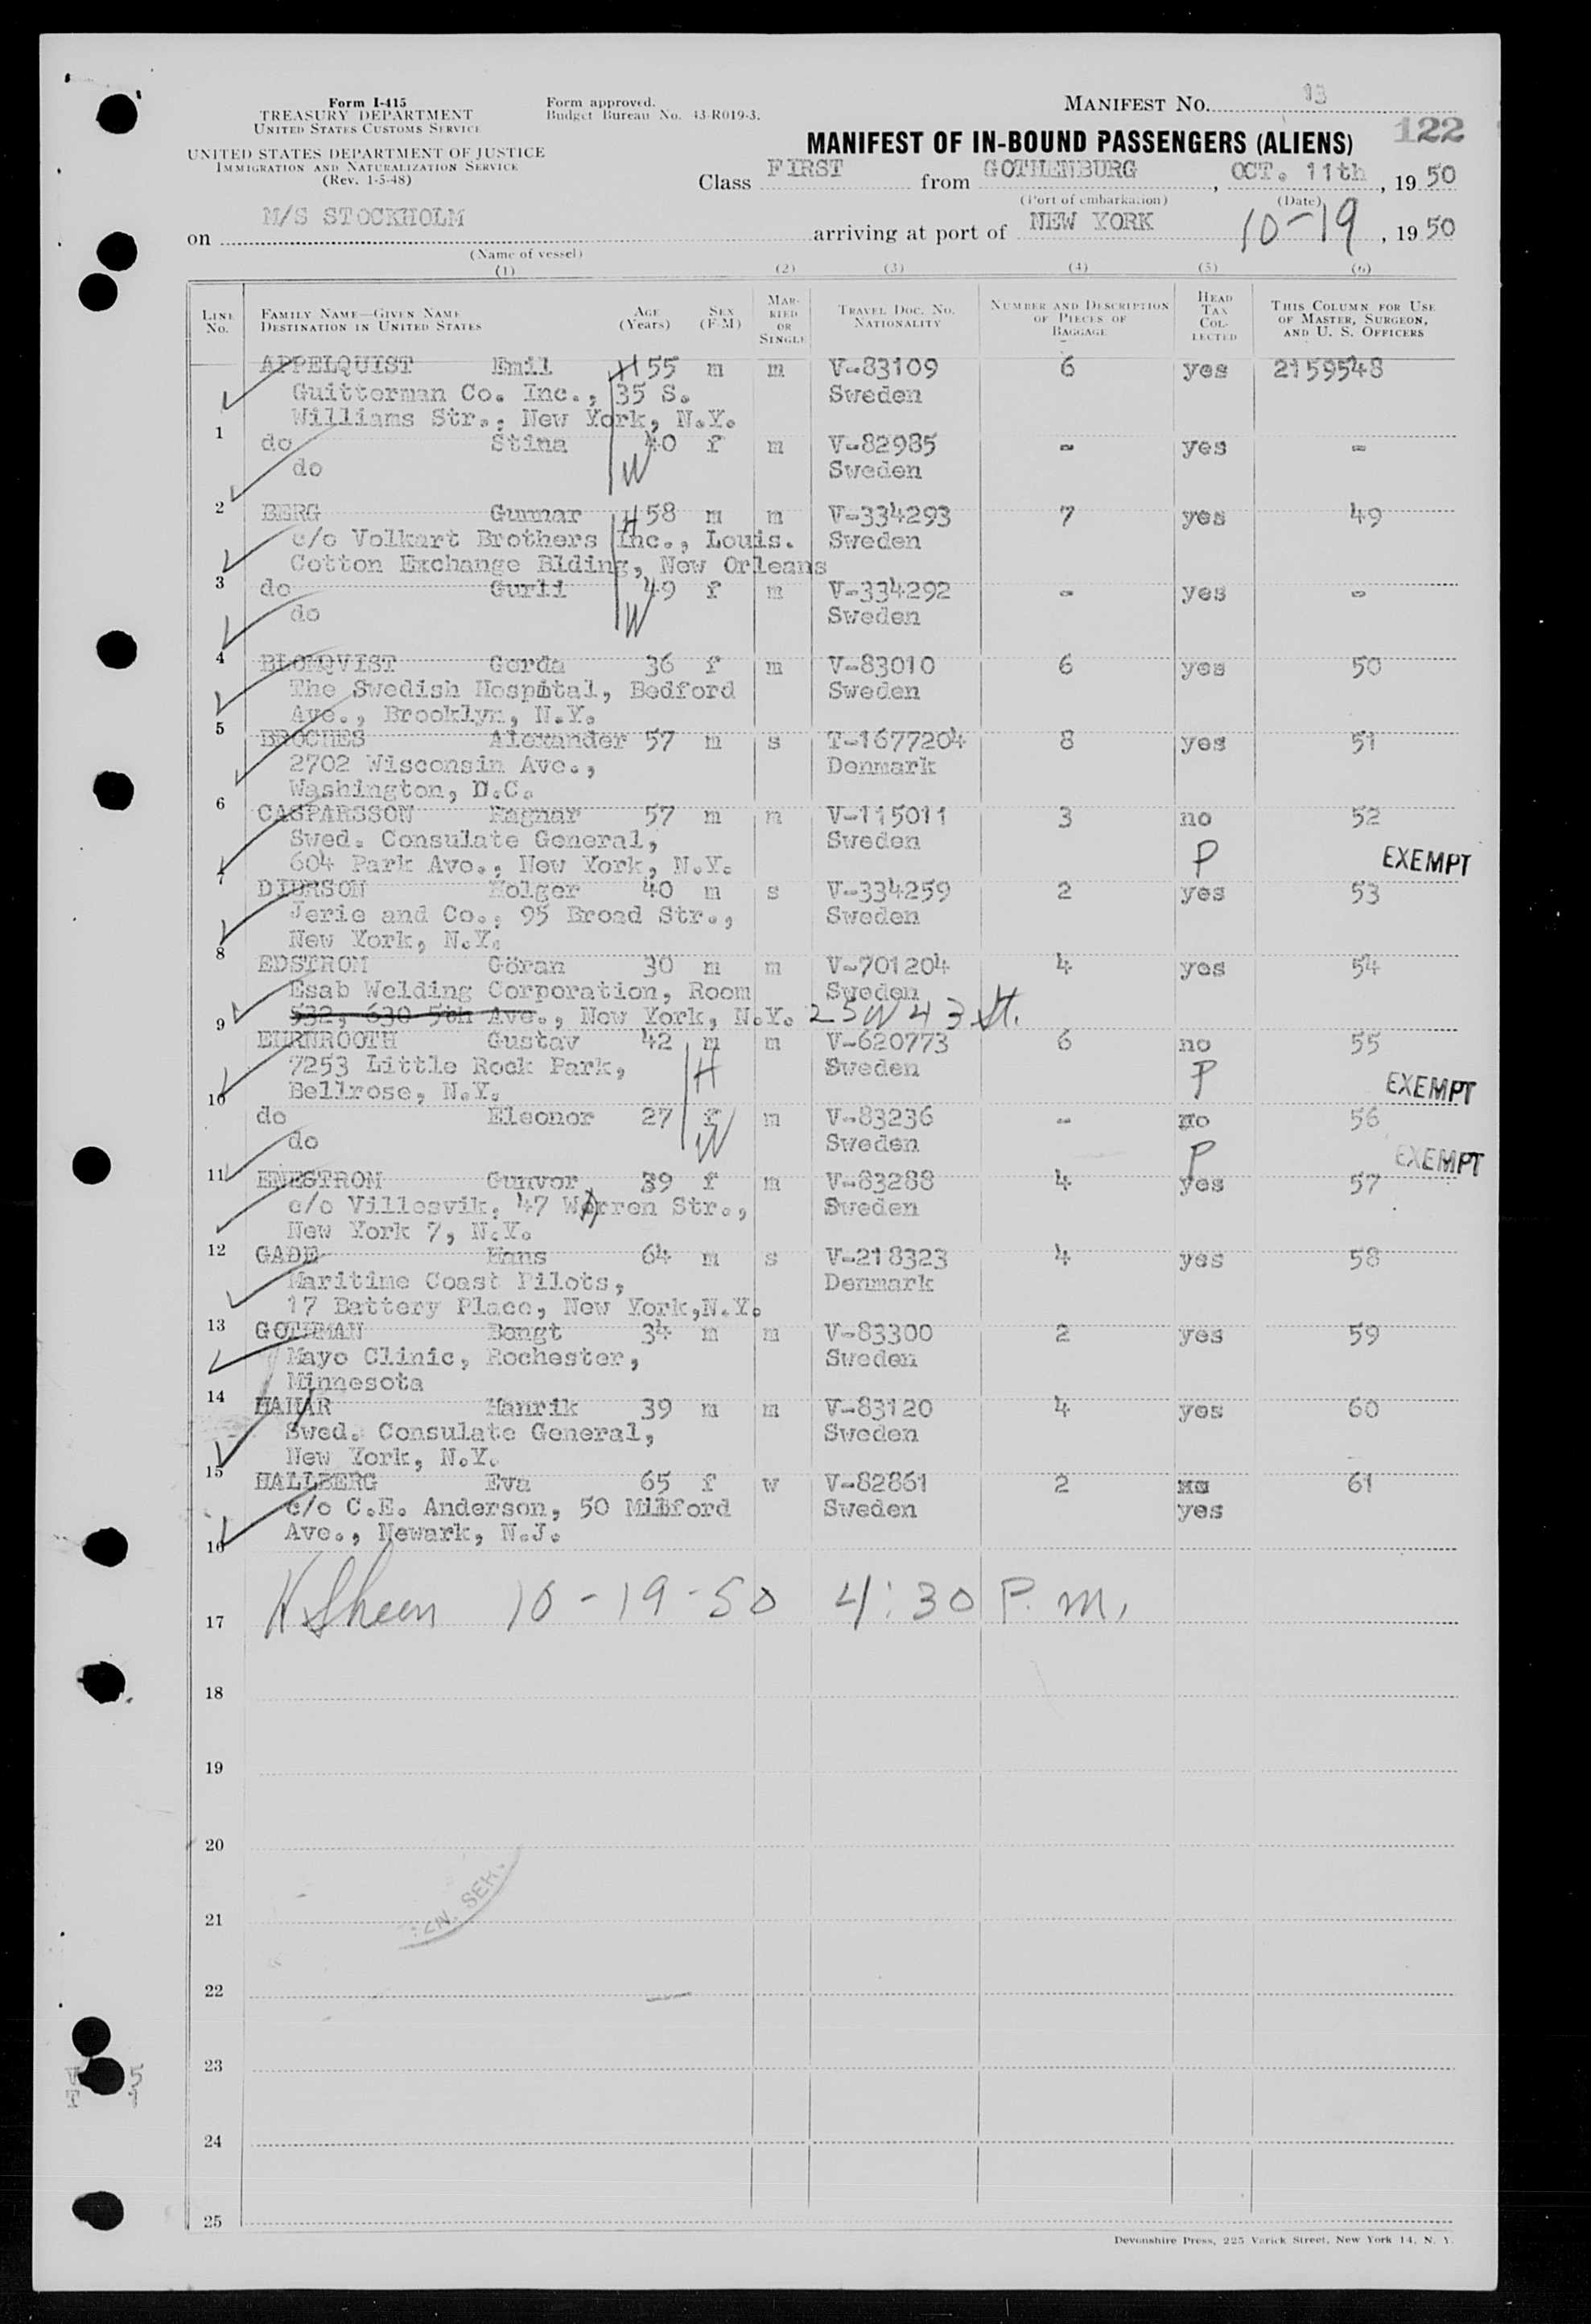 Form I-415
TREASURY DEPARTMENT
UNITED STATES CUSTOMS SERVICE
UNITED STATES DEPARTMENT OF JUSTICE
IMMIGRATION AND NATURALIZATION SERVICE
(Rev. 1-5-48)
Form approved.
Budget Bureau No. 43-R019-3.
MANIFEST NO. 13
122
MANIFEST OF IN-BOUND PASSENGERS (ALIENS)
Class FIRST from GOTHENBURG, OCT. 11th, 1950
(Port of embarkation) (Date)
on M/S STOCKHOLM arriving at port of NEW YORK 10-19, 1950
(Name of vessel)
(1) (2) (3) (4) (5) (6)
LINE NO. FAMILY NAME—GIVEN NAME DESTINATION IN UNITED STATES AGE (Years) SEX (F-M) MARRIED OR SINGLE TRAVEL DOC. NO. NATIONALITY NUMBER AND DESCRIPTION OF PIECES OF BAGGAGE HEAD TAX COLLECTED THIS COLUMN FOR USE OF MASTER, SURGEON, AND U. S. OFFICERS
APPELQUIST Emil H 55 m m V-83109 6 yes 2159548
Guitterman Co. Inc., 35 S. Sweden
Williams Str., New York, N.Y.
1
do Stina 40 f m V-82985 - yes -
do W Sweden
2
BERG Gunnar H 58 m m V-334293 7 yes 49
c/o Volkart Brothers Inc., Louis. Sweden
Cotton Exchange Blding, New Orleans
3
do Gurli 49 f m V-334292 - yes -
do W Sweden
4
BLOMQVIST Gerda 36 f m V-83010 6 yes 50
The Swedish Hospital, Bedford Sweden
Ave., Brooklyn, N.Y.
5
BROCHES Alexander 57 m s T-1677204 8 yes 51
2702 Wisconsin Ave., Denmark
Washington, D.C.
6
CASPARSSON Ragnar 57 m m V-115011 3 no 52
Swed. Consulate General, Sweden
604 Park Ave., New York, N.Y. P EXEMPT
7
DIURSON Holger 40 m s V-334259 2 yes 53
Jerie and Co., 95 Broad Str., Sweden
New York, N.Y.
8
EDSTROM Göran 30 m m V-701204 4 yes 54
Esab Welding Corporation, Room Sweden
532, 630 5th Ave., New York, N.Y. 25 W 43 St.
9
EHRNROOTH Gustav 42 m m V-620773 6 no 55
7253 Little Rock Park, H Sweden P
Bellrose, N.Y. EXEMPT
10
do Eleonor 27 f m V-83236 - no 56
do W Sweden P EXEMPT
11
ENESTROM Gunvor 39 f m V-83288 4 yes 57
c/o Villesvik, 47 Warren Str., Sweden
New York 7, N.Y.
12
GADE Hans 64 m s V-218323 4 yes 58
Maritime Coast Pilots, Denmark
17 Battery Place, New York, N.Y.
13
GOTHMAN Bengt 34 m m V-83300 2 yes 59
Mayo Clinic, Rochester, Sweden
Minnesota
14
HAHR Henrik 39 m m V-83120 4 yes 60
Swed. Consulate General, Sweden
New York, N.Y.
15
HALLBERG Eva 65 f w V-82861 2 61
c/o C.E. Anderson, 50 Milford Sweden yes
Ave., Newark, N.J.
16
10-19-50 4:30 P.m.
17
18
19
20
21
22
23
24
25
V 5
T 1
Devonshire Press, 225 Varick Street, New York 14, N. Y.